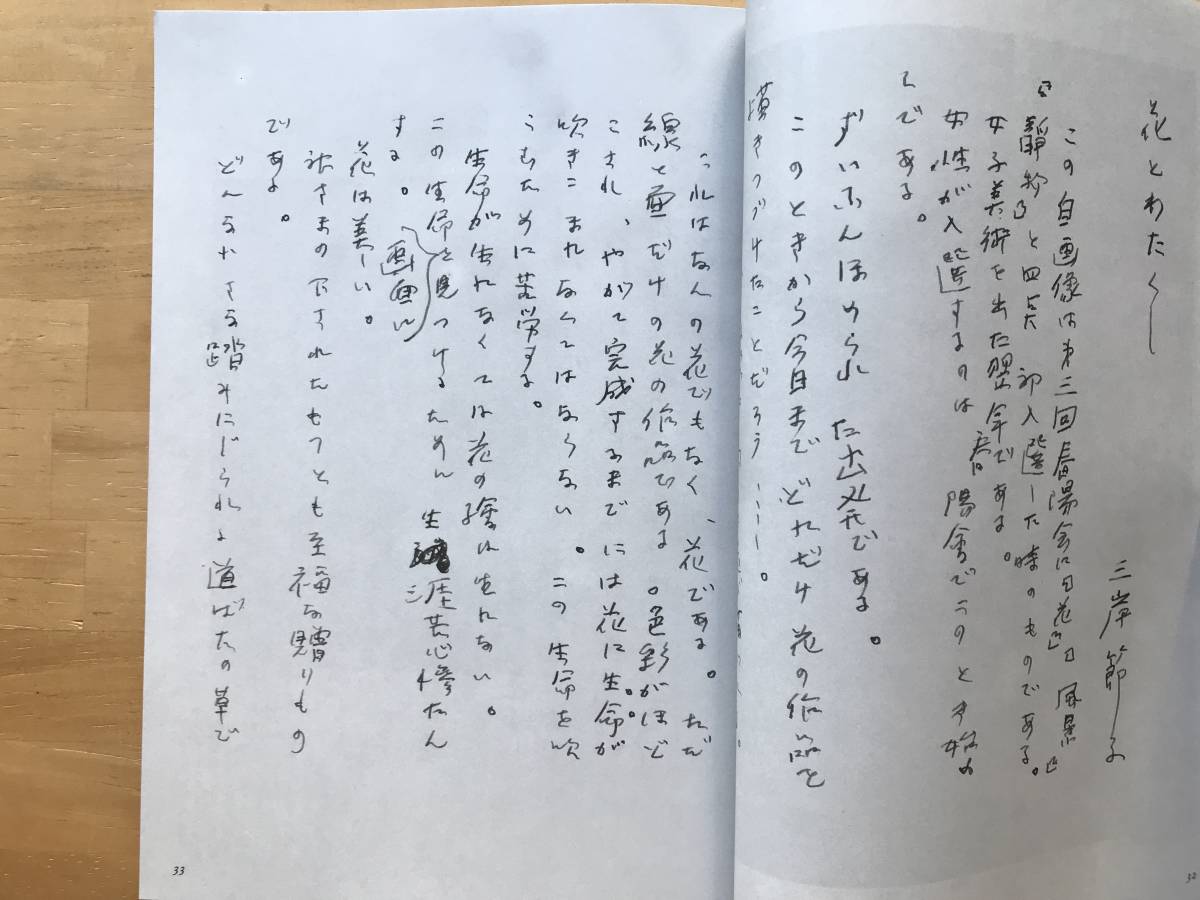 花とわたくし
三岸節子
この自画像は第三回春陽会に「花」「風景」
「靜物」と四点初入選した時のものである。
女子美術を出た翌年である。
女性が入選するのは春陽會でこのとき始め
てである。
ずいぶんほめられた出発である。
このときから今日までどれだけ花の作品を
描きつづけたことだろう……。
これはなんの花でもなく、花である。ただ
線と面だけの花の作品である。色彩がほど
こされ、やがて完成するまでには花に生命が
吹きこまれなくてはならない。この生命を吹
きこむために苦労する。
生命が生れなくては花の繪は生れない。
この生命を見つけるために生涯苦心惨たん
する。
画面に
花は美しい。
神さまの下されたもっとも至福な贈りもの
である。
どんな小さな踏みにじられた道ばたの草で
33
32